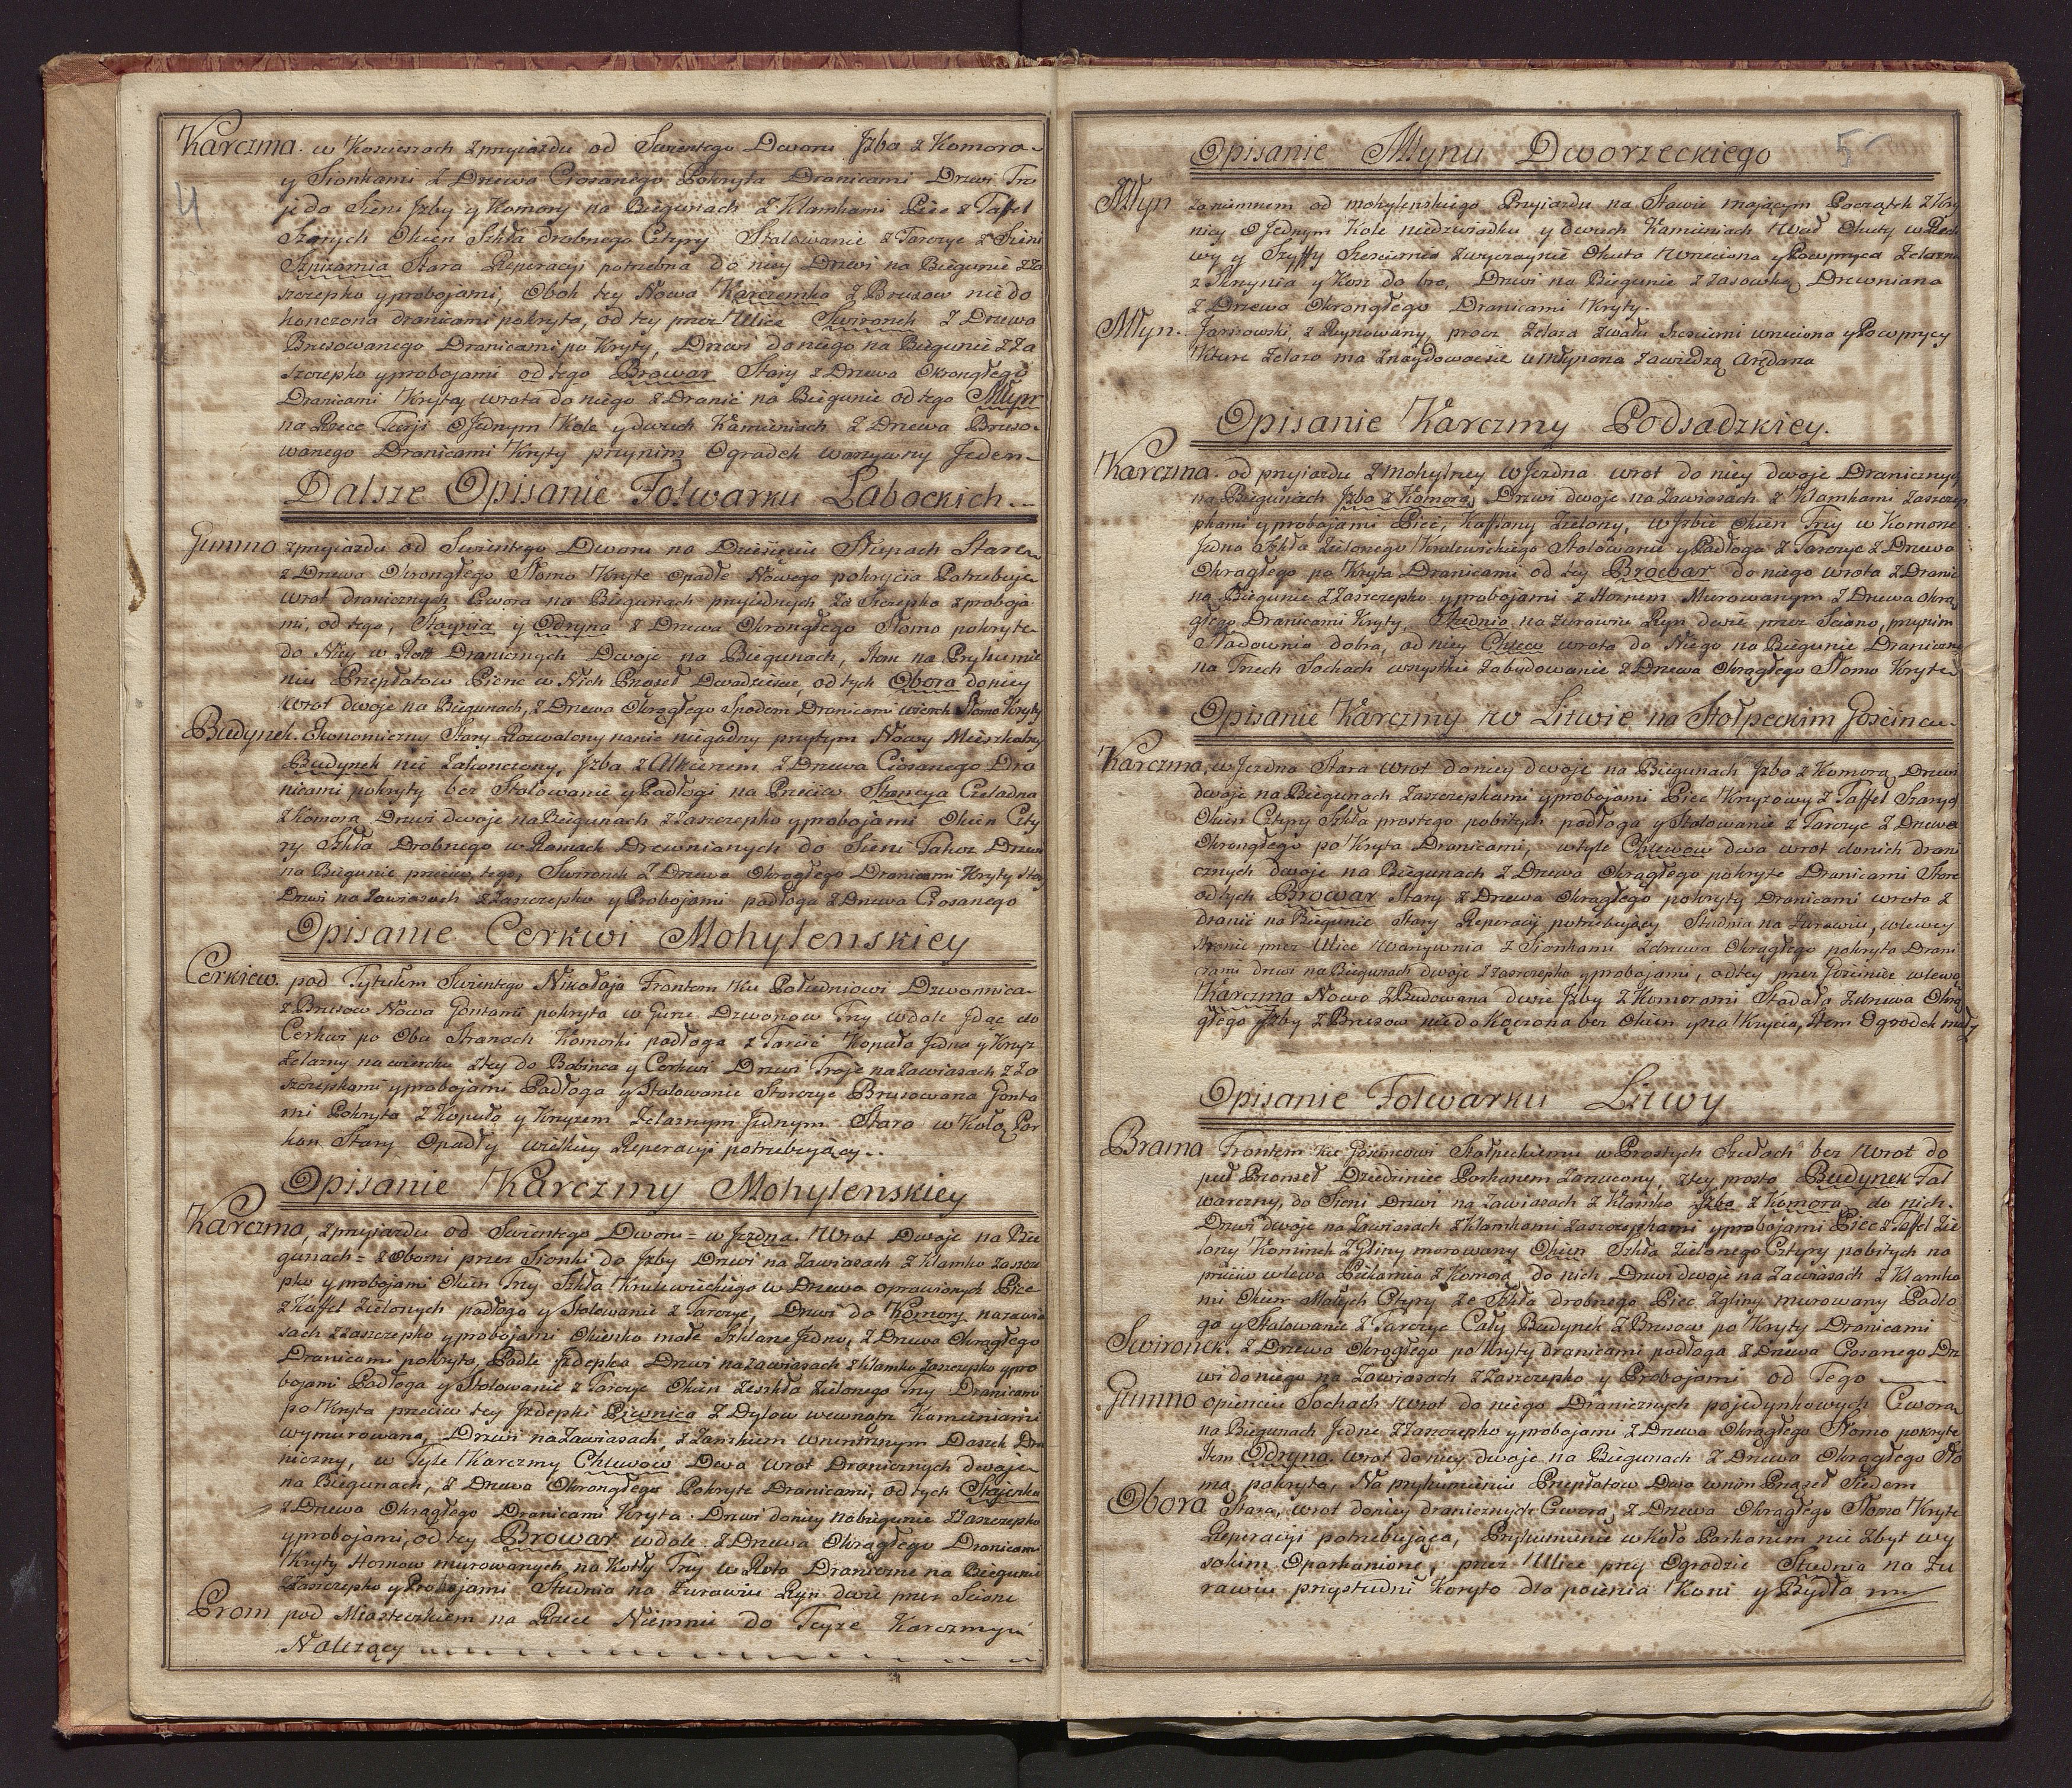 Karczma. w Kosciszach z przyiazdu od Swirntego Dworu Jzba z Komora
4
y Sionkami z Drzewa Ciosanego Pokryta Dranicami Drzwi Tro
je do Sieni Jzby y Komory na Biegunach z Klamkami Piec z Taffel
Szarych Okien Szkła drobnego Cztyry Stalowanie z Tarczyc z Sieni
Szpizarnia Stara Reperacyi potrzebna do niey Drzwi na Biegunie z Za
szczepko y probojami, Obok tey Nowa Karczemka z Brusow nie do
konczona dranicami pokryta, od tey przez Ulice Swironek z Drzewa
Brusowanego Dranicami po Kryty, Drzwi do niego na Biegunie z Za
szczepko y probojami od tego Browar Stary z Drzewa Okrongłego
Dranicami Kryty wrota do niego z Dranic na Biegunie od tego Młyn
na Rzece Turji O Jednym Kole y dwuch Kamieniach z Drzewa Bruso-
wanego Dranicami Kryty przynim Ogradek warzywny Jeden
Dalsze Opisanie Folwarku Labockich
Gumno z przyiazdu od Swirntego Dworu na Dziesięciu Słupach Stare
z Drzewa Okrongłego Słomo Kryte opadłe Nowego pokrycia Potrzebuje
Wrot dranicznych Czwora na Biegunach przyiednych Za Szczepka z proboja
mi, od tego, Staynia y Odryna z Drzewa Okrongłego Słomo pokryte
do Niey w Rott Dranicznych Dwoje na Biegunach, Item na Pryhumie
niu Przepłatow Pienc w Nich Przoseł Dwadziescie, od tych Obora do niey
Wrot dwoje na Biegunach, z Drzewa Okrągłego Spodem Dranicami wierch Słomo Kryty
Budynek. Ekonomiczny Stary Rozwalony nanic niegodny przytym Nowy Mieszkalny
Budynek nie Zakonczony, Jzba z Alkierzem z Drzewa Ciosanego Dra
nicami pokryty bez Stolowanie y Padłogi na Przeciw Stancya Czeladna
z Komorą Drzwi dwoje na Biegunach z Zaszczepko y probojami Okien Czty
ry Szkła Drobnego w Ramach Drewnianych do Sieni Takoz Drzwi
na Biegunie przeciw tego, Swironek z Drzewa Okrągłego Dranicami Kryty Stary
Drzwi na Zawiasach z Zaszczepko y Probojami padłoga z Drzewa Ciosanego
Opisanie Cerkwi Mohylenskiey
Cerkiew pod Tytułem Swientego Nikołaja Frontem Ku Południowi Dzwonnica
z Brusow Nowa Gontami pokryta w Gurze Dzwonow Trzy wdole Jdąc do
Cerkwi po Obu Stranach Komorki padłoga z Tarcic Kopuła Jedna y Krzyz
Zelazny na wierchu z tey do Babinca y Cerkwi Drzwi Troje na Zawiasach z Za
szczepkami y probojami Padłoga y Stalowanie Starczyc Brusowana Gonta
mi Pokryta z Kopuło y Krzyzem Zelaznym Jednym Stara w Koło Par
kan Stary Opadły wielkiey Reperacyi potrzebujący..
Opisanie Karczmy Mohylenskiey
Karczma, z przyiazdu od Swientego Dworu = w Jezdna. Wrot Dwoje na Bie
gunach = z Oborni przez Sionki do Jzby Drzwi na Zawiasach z Klamko Zaszcze
pko y probojami Okien Trzy Szkła Krulewieckiego w Drzewo oprawionych Piec
z Kaffel Zielonych padłoga y Stolowanie z Tarczyc, Drzwi do Komory nazawia
sach z Zaszczepko y probojami Okienko małe Szklane Jedno, z Drzewa Okrągłego
Dranicami pokryta, Podle Jzdepka Drzwi na Zawiasach z Klamko Zaszczepko y pro
bojami Podłoga y Stolowanie z Tarczyc Okien zeszkła Zielonego Trzy Dranicami
po Kryta przeciw tey Jzdepki Piwnica z Dylow wewnątrz Kamieniami
wymurowana, Drzwi na Zawiasach, z Zamkiem wnentrznym Daszek Dra
niczny, w Tyle Karczmy Chlewow Dwa Wrot Dranicznych dwoje
na Biegunach, z Drzewa Okrongłego Pokryte Dranicami, od tych Stajenka
z Drzewa Okrągłego Dranicami Kryta. Drzwi do niey nabiegunie z Zaszczepko
y probojami, od tey Browar wdole z Drzewa Okrągłego Dranicami
Kryty Hornow murowanych na Kotły Trzy w Rota Draniczne na Biegunie
z Zaszczepko y Probojami Studnia na Zurawiu Ryn dwie przez Scione
Prom pod Miasteczkiem na Rzece Niemnie do Teyze Karczmy
Nalezący
Opisanie Młynu Dworzeckiego 5
Młyn zaniemnem od mohylenskiego Przyiazdu na Stawie mającym Początek z Kry
nicy O Jednym Kole niedzwiadku y dwuch Kamieniach Wał Okuty w Rech
wy y Szyffy Szesciernia zwyczaynie Okuta Wrzeciona y Powpryca Zelazna
z Skrzynia y Kosz do bre, Drzwi na Biegunie z Zasowką Drewniana
z Drzewa Okrongłego Dranicami Kryty.
Młyn. Jarszowski, z Ruynowany, procz Zelaza zwału Szescierni wrzeciona y Powprycy
Kture Zelazo ma Znaydowacsie u młynarza Zawiedzą Arędarza
Opisanie Karczmy Podsadzkiey.
Karczma. od przyiazdu z Mohylney w Jezdna wrot do niey dwoje Dranicznych
na Biegunach Jzba z Komorą, Drzwi dwoje na Zawiasach z Klamkami Zaszczep
pkami y probojami Piec, Kaflany Zielony, w Jzbie Okien Trzy w Komorze
Jedno Szkła Zielonego Krulewickiego Stolowanie y Padłoga z Tarczyc z Drzewa
Okrągłego po Kryta Dranicami od tey Browar do niego wrota z Dranic
na Biegunie z Zaszczepko y probojami z Hornem Murowanym z Drzewa Okrą
głego Dranicami Kryty, Studnia na Zurawiu Ryn dwie przez Sciano, przynim
Sładownia dobra, od niey Chlew wrota do Niego na Biegunie Draniczne
na Trzech Sochach wszystkie Zabudowanie z Drzewa Okrągłego Słomo Kryte
Opisanie Karczmy w Litwie na Stołpeckim Goscincu
Karczma, w Jezdna Stara Wrot do niey dwoje na Biegunach Jzba z Komorą Drzwi
dwoje na Biegunach Zaszczepkami y probojami Piec Krzyzowy z Taffel Szarych
Okien Cztyry Szkła prostego pobitych padłoga y Stalowanie z Tarczyc z Drzewa
Okrongłego po Kryta Dranicami, wtyle Chlewow dwa wrot donich drani
cznych dwoje na Biegunach z Drzewa Okrągłego pokryte Dranicami Stare
od tych Browar Stary z Drzewa Okrągłego pokryty Dranicami wrota z
dranic na Biegunie Stary Reperacyi potrzebujący Studnia na Zurawiu, wlewey
stronie przez Ulice Warzywnia z Sionkami Zdrzewa Okrągłego pokryta Drani
cami drzwi na Biegunach dwoje z Zaszczepko y probojami, od tey przez Gosciniec wlewo
Karczma Nowa z Budowana dwie Jzby z Komorami Stadała Zdrzewa Okrą
głego Jzby z Brusow nie do Kączona bez Okien y po Krycia, Item Ogrodek mały
Opisanie Folwarku Litwy
Brama Frontem Ku Goscincowi Stołpeckiemu w Prostych Szułach bez Wrot do
pul Przoseł Dziedziniec Parkanem Zarzucony, z tey prosto Budynek Fal
warczny, do Sieni Drzwi na Zawiasach z Klamko Jzba z Komorą do nich
Drzwi dwoje na Zawiasach z Klamkami Zaszczepkami y probojami Piec z Taffel Zie
lony Kominek z Gliny morowany Okien Szkła Zielonego Cztyry pobitych na
przeciw wlewa Piekarnia z Komorą do nich Drzwi dwoje na Zawiasach z Klamka
mi Okien Małych Cztyry ze Szkła drobnego Piec z gliny murowany Padło
ga y Stalowanie z Tarczyc Cały Budynek z Brusow po Kryty Dranicami
Swironek. z Drzewa Okrągłego po Kryty dranicami podłoga z Drzewa Ciosanego Drz
wi do niego na Zawiasach z Zaszczepko y Probojami od Tego
Gumno opienciu Sochach Wrot do niego Dranicznych pojedynkowych Czwora
na Biegunach Jedne z Zaszczepko y probojami z Drzewa Okrągłego Słomo pokryte
Item Odryna. Wrot do niey dwoje na Biegunach z Drzewa Okrągłego Sło
mą, pokryta, Na pryhumieniu Przepłatow Dwa wnim Prazeł Siedem
Obora Stara, wrot do niey dranicznych Czwora, z Drzewa Okrągłego Słomo Kryte
Reperacyi potrzebująca, Pryhumienie w Koło Parkanem nie Zbyt wy
sokim Oparkanione, przez Ulice przy Ogrodzie Studnia na Zu
rawiu przystudni Koryto dla pojenia Koni y Bydła